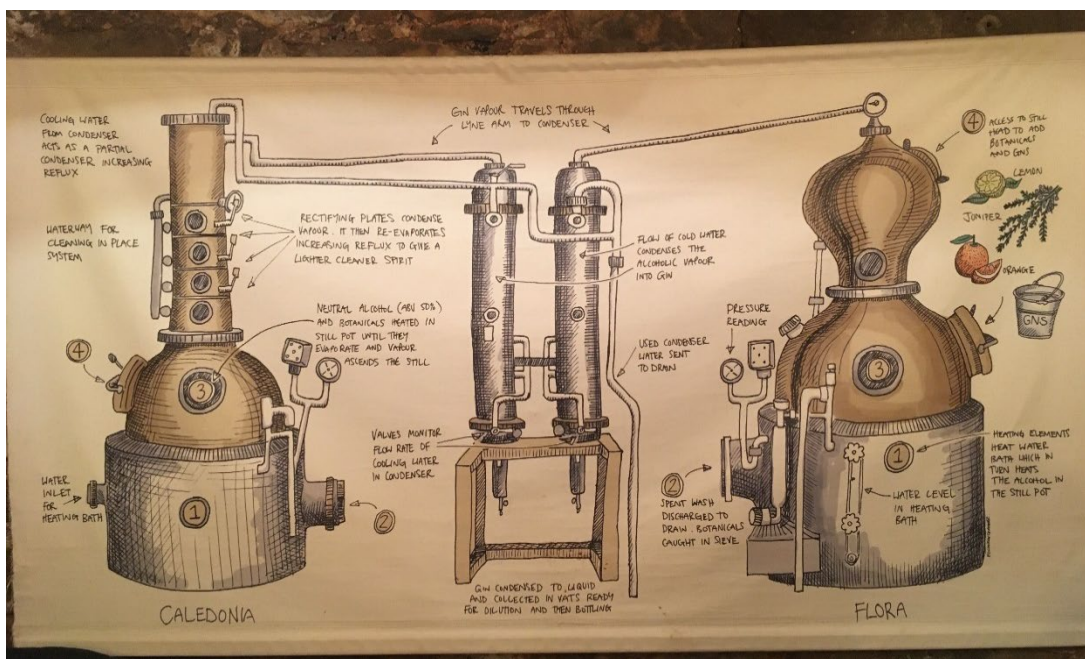 COOLING WATER
FROM CONDENSER
ACTS AS A PARTIAL
CONDENSER INCREASING
REFLUX
WATERWAY FOR
CLEANING IN PLACE
SYSTEM
RECTIFYING PLATES CONDENSE
VAPOUR. IT THEN RE-EVAPORATES
INCREASING REFLUX TO GIVE A
LIGHTER CLEANER SPIRIT
NEUTRAL ALCOHOL (ABV 50%)
AND BOTANICALS HEATED IN
STILL POT UNTIL THEY
EVAPORATE AND VAPOUR
ASCENDS THE STILL
4
3
WATER
INLET
FOR
HEATING BATH
1
2
CALEDONIA
GIN VAPOUR TRAVELS THROUGH
LYNE ARM TO CONDENSER
FLOW OF COLD WATER
CONDENSES THE
ALCOHOLIC VAPOUR
INTO GIN
USED CONDENSER
WATER SENT
TO DRAIN
VALVES MONITOR
FLOW RATE OF
COOLING WATER
IN CONDENSER
GIN CONDENSED TO LIQUID
AND COLLECTED IN VATS READY
FOR DILUTION AND THEN BOTTLING
4
ACCESS TO STILL
HEAD TO ADD
BOTANICALS
AND GNS
LEMON
JUNIPER
ORANGE
GNS
PRESSURE
READING
3
1
HEATING ELEMENTS
HEAT WATER
BATH WHICH IN
TURN HEATS
THE ALCOHOL IN
THE STILL POT
WATER LEVEL
IN HEATING
BATH
2
SPENT WASH
DISCHARGED TO
DRAW. BOTANICALS
CAUGHT IN SIEVE
FLORA